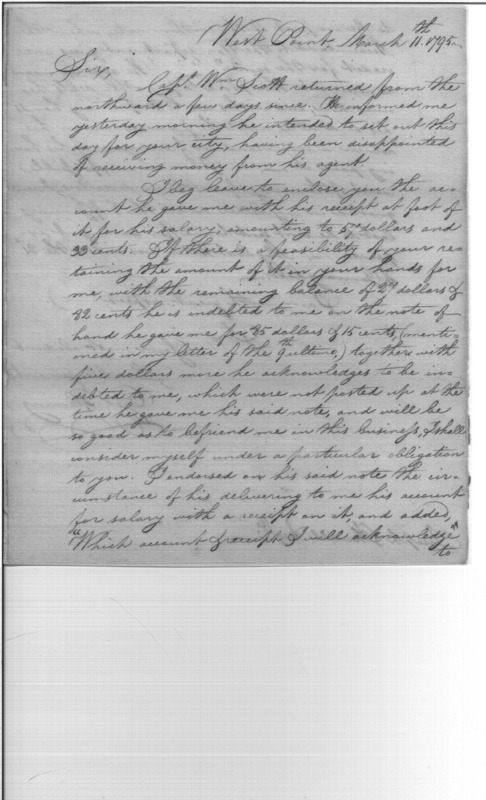 West Point, March 11.th 1795.
Sir,
Capt. Wm. Scott returned from the
northward a few days since. He informed me
yesterday morning he intended to set out this
day for your city, having been disappointed
of receiving money from his agent
I beg leave to enclose you the ac-
count he gave me with his receipt at foot of
it for his salary, amounting to dollars and
33 cents. If there is a feasibility of your re-
taining the amount of it in your hands for
me, with the remaining balance of dollars &
82 cents he is indebted to me on the note of
hand he gave me for 85 dollars & 15 cents, (menti-
oned in my letter of the 9th ultimo,) together with
five dollars more he acknowledges to be in-
debted to me, which were not posted up at the
time he gave me his said note, and will be
so good as to befriend me in this business, I shall
consider myself under a particular obligation
to you. I endorsed on his said note the cir-
cumstance of his delivering to me his account
for salary with a receipt on it, and added,
"Which account & receipt I will acknowledge"
to